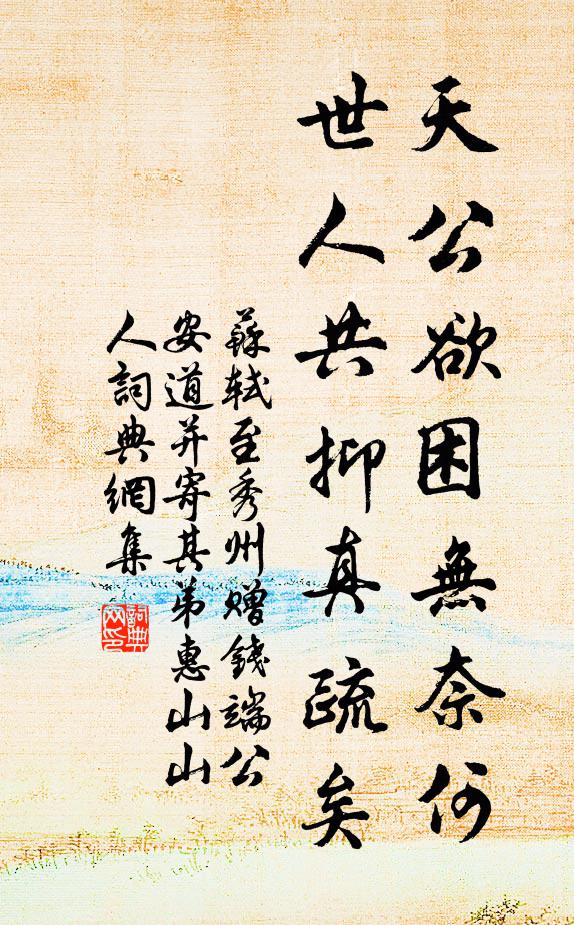 天公欲困無奈何
世人共抑真疏矣
蘇軾至秀州贈錢端公
安道并寄其弟惠山山
人詞典網集
詞典
网印